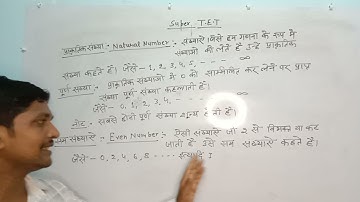 Super. T.E.T
प्राकृतिक संख्या :- Natural Number :- संख्याएँ जिसे हम गणना के रूप में
संख्याओं को लेते हैं उन्हें प्राकृतिक
संख्या कहते हैं। जैसे - 1, 2, 3, 4, 5, - - - - ∞
पूर्ण संख्या :- प्राकृतिक संख्याओं में 0 को सम्मिलित कर लेने पर प्राप्त
संख्या पूर्ण संख्या कहलाती हैं।
जैसे - 0, 1, 2, 3, 4, - - - - ∞
नोट :- सबसे छोटी पूर्ण संख्या शून्य होती है।
सम संख्याएँ :- Even Number :- ऐसी संख्याएँ जो 2 से विभक्त या कट
जाती हैं उसे सम संख्याएँ कहते हैं।
जैसे - 0, 2, 4, 6, 8 ---- इत्यादि I